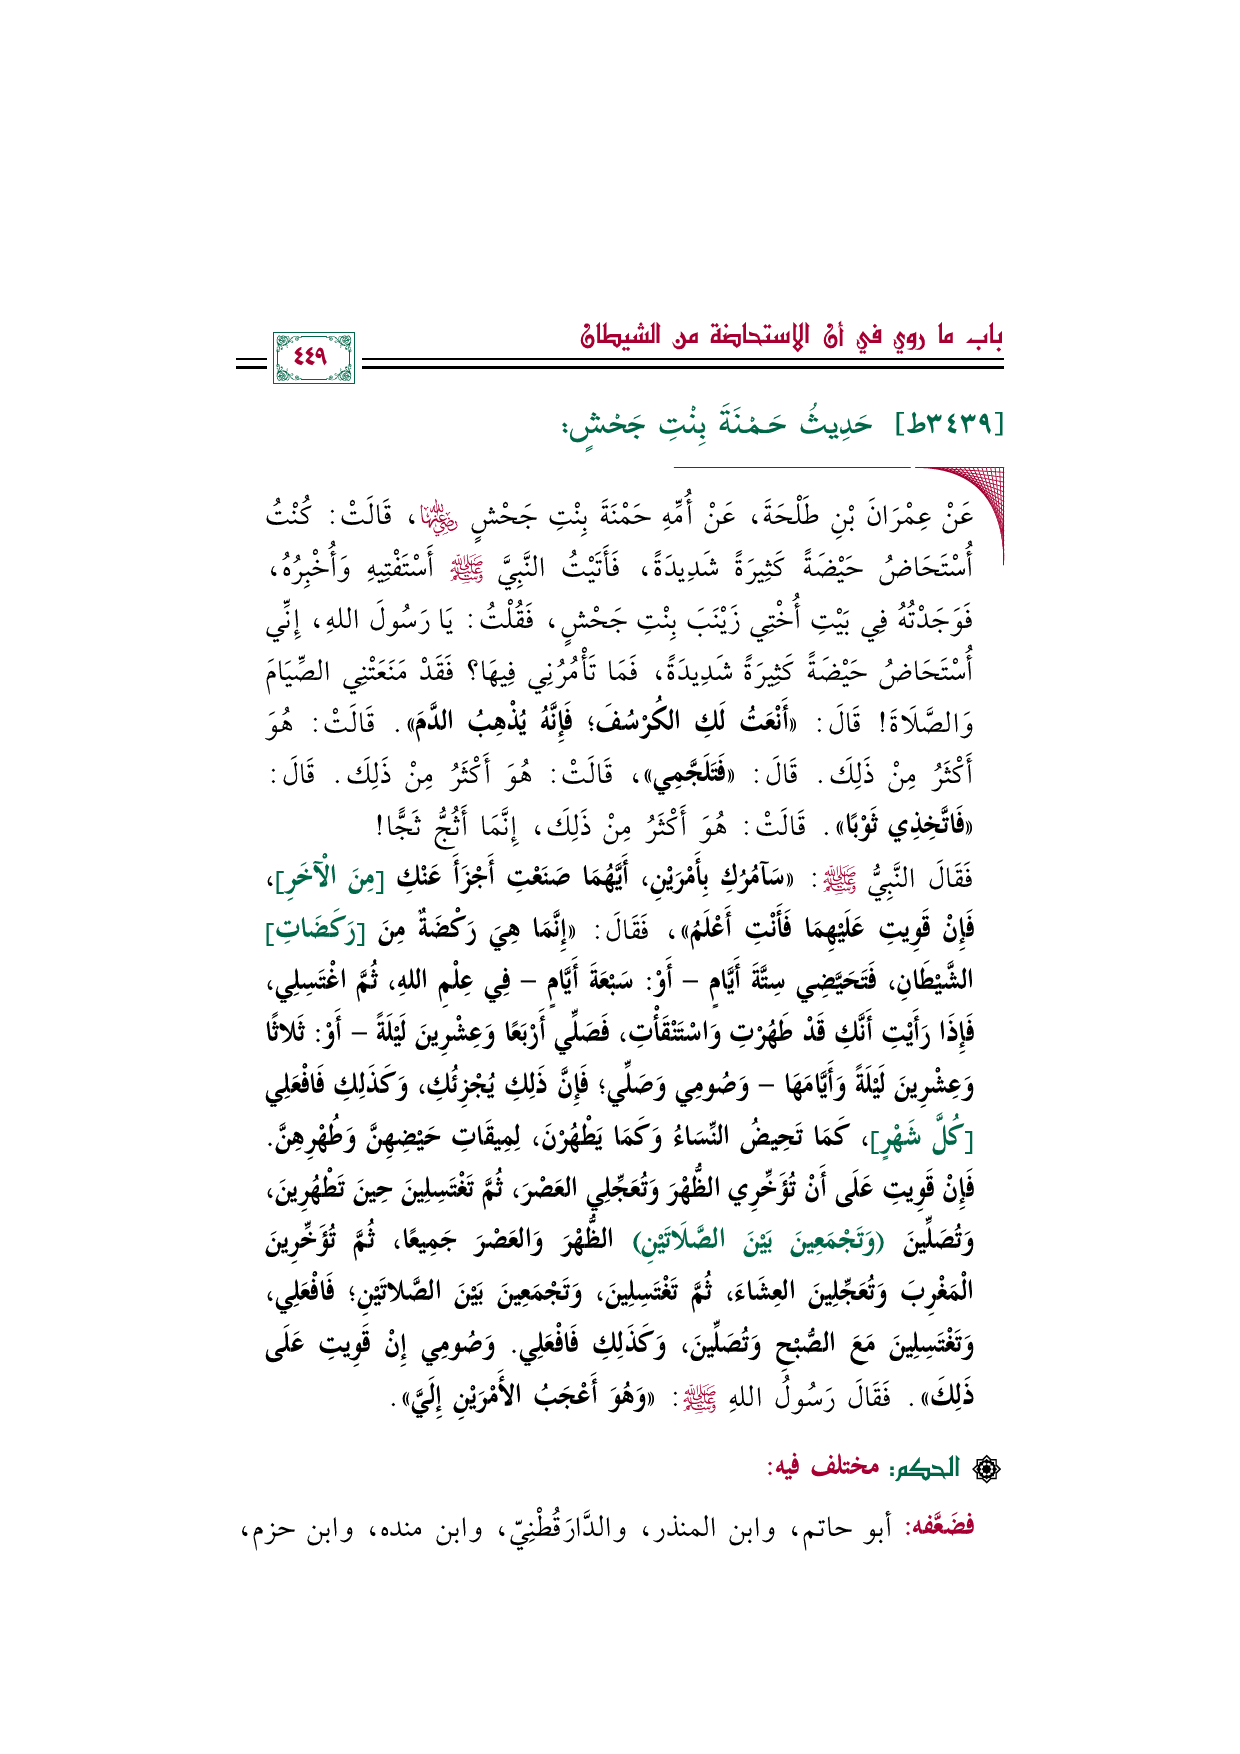 باب ما روي في أن الاستحاضة من الشيطان
٤٤٩
[٣٤٣٩ط] حَدِيثُ حَمْنَةَ بِنْتِ جَحْشٍ:
عَنْ عِمْرَانَ بْنِ طَلْحَةَ، عَنْ أُمِّهِ حَمْنَةَ بِنْتِ جَحْشٍ رضي الله عنها، قَالَتْ: كُنْتُ
أُسْتَحَاضُ حَيْضَةً كَثِيرَةً شَدِيدَةً، فَأَتَيْتُ النَّبِيَّ ﷺ أَسْتَفْتِيهِ وَأُخْبِرُهُ،
فَوَجَدْتُهُ فِي بَيْتِ أُخْتِي زَيْنَبَ بِنْتِ جَحْشٍ، فَقُلْتُ: يَا رَسُولَ اللهِ، إِنِّي
أُسْتَحَاضُ حَيْضَةً كَثِيرَةً شَدِيدَةً، فَمَا تَأْمُرُنِي فِيهَا؟ فَقَدْ مَنَعَتْنِي الصِّيَامَ
وَالصَّلَاةَ! قَالَ: «أَنْعَتُ لَكِ الكُرْسُفَ؛ فَإِنَّهُ يُذْهِبُ الدَّمَ». قَالَتْ: هُوَ
أَكْثَرُ مِنْ ذَلِكَ. قَالَ: «فَتَلَجَّمِي»، قَالَتْ: هُوَ أَكْثَرُ مِنْ ذَلِكَ. قَالَ:
«فَاتَّخِذِي ثَوْبًا». قَالَتْ: هُوَ أَكْثَرُ مِنْ ذَلِكَ، إِنَّمَا أَثُجُّ ثَجًّا!
فَقَالَ النَّبِيُّ ﷺ: «سَآمُرُكِ بِأَمْرَيْنِ، أَيَّهُمَا صَنَعْتِ أَجْزَأَ عَنْكِ [مِنَ الْآخَرِ]،
فَإِنْ قَوِيتِ عَلَيْهِمَا فَأَنْتِ أَعْلَمُ»، فَقَالَ: «إِنَّمَا هِيَ رَكْضَةٌ مِنَ [رَكَضَاتِ]
الشَّيْطَانِ، فَتَحَيَّضِي سِتَّةَ أَيَّامٍ – أَوْ: سَبْعَةَ أَيَّامٍ – فِي عِلْمِ اللهِ، ثُمَّ اغْتَسِلِي،
فَإِذَا رَأَيْتِ أَنَّكِ قَدْ طَهُرْتِ وَاسْتَنْقَأْتِ، فَصَلِّي أَرْبَعًا وَعِشْرِينَ لَيْلَةً – أَوْ: ثَلاثًا
وَعِشْرِينَ لَيْلَةً وَأَيَّامَهَا – وَصُومِي وَصَلِّي؛ فَإِنَّ ذَلِكِ يُجْزِئُكِ، وَكَذَلِكِ فَافْعَلِي
[كُلَّ شَهْرٍ]، كَمَا تَحِيضُ النِّسَاءُ وَكَمَا يَطْهُرْنَ، لِمِيقَاتِ حَيْضِهِنَّ وَطُهْرِهِنَّ.
فَإِنْ قَوِيتِ عَلَى أَنْ تُؤَخِّرِي الظُّهْرَ وَتُعَجِّلِي العَصْرَ، ثُمَّ تَغْتَسِلِينَ حِينَ تَطْهُرِينَ،
وَتُصَلِّينَ (وَتَجْمَعِينَ بَيْنَ الصَّلَاتَيْنِ) الظُّهْرَ وَالعَصْرَ جَمِيعًا، ثُمَّ تُؤَخِّرِينَ
الْمَغْرِبَ وَتُعَجِّلِينَ العِشَاءَ، ثُمَّ تَغْتَسِلِينَ، وَتَجْمَعِينَ بَيْنَ الصَّلاتَيْنِ؛ فَافْعَلِي،
وَتَغْتَسِلِينَ مَعَ الصُّبْحِ وَتُصَلِّينَ، وَكَذَلِكِ فَافْعَلِي. وَصُومِي إِنْ قَوِيتِ عَلَى
ذَلِكَ». فَقَالَ رَسُولُ اللهِ ﷺ: «وَهُوَ أَعْجَبُ الأَمْرَيْنِ إِلَيَّ».
الحكم: مختلف فيه:
فضَعَّفه: أبو حاتم، وابن المنذر، والدَّارَقُطْنِيّ، وابن منده، وابن حزم،